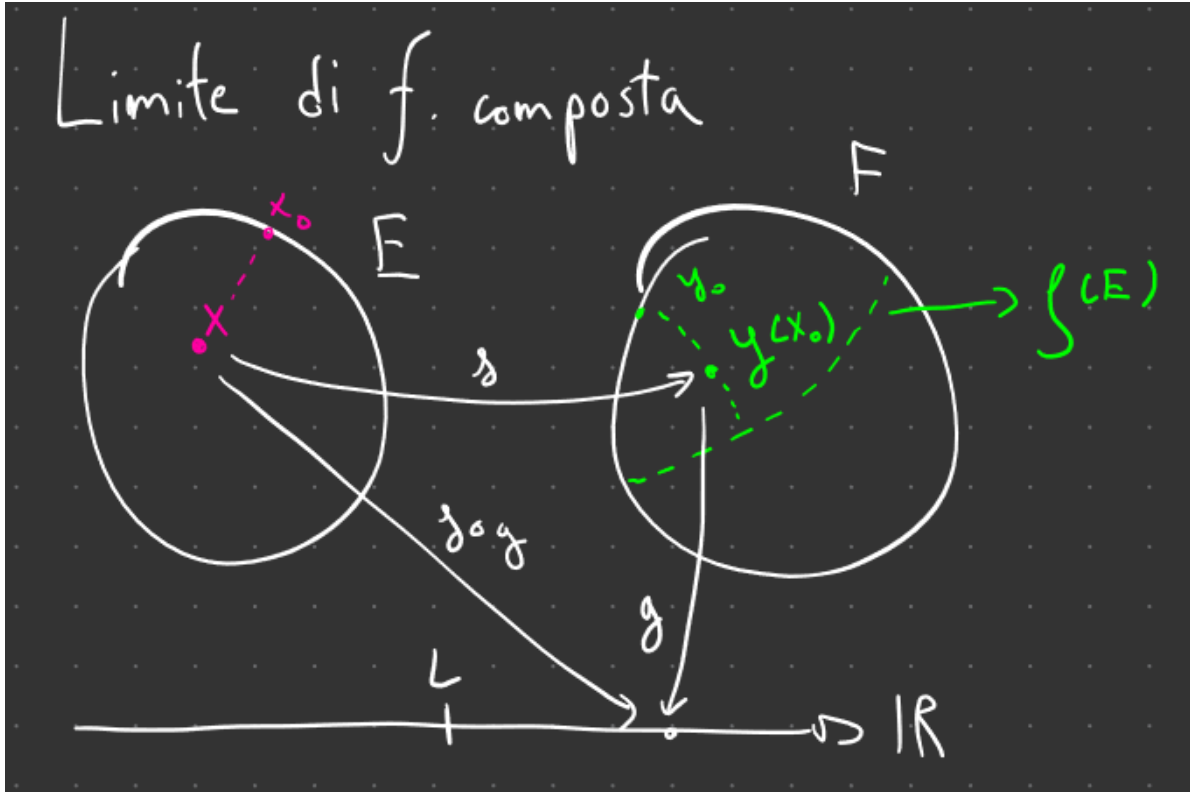 Limite di f. composta
F
x₀
E
y₀
f(E)
X
y(x₀)
f
f∘g
g
L
ℝ